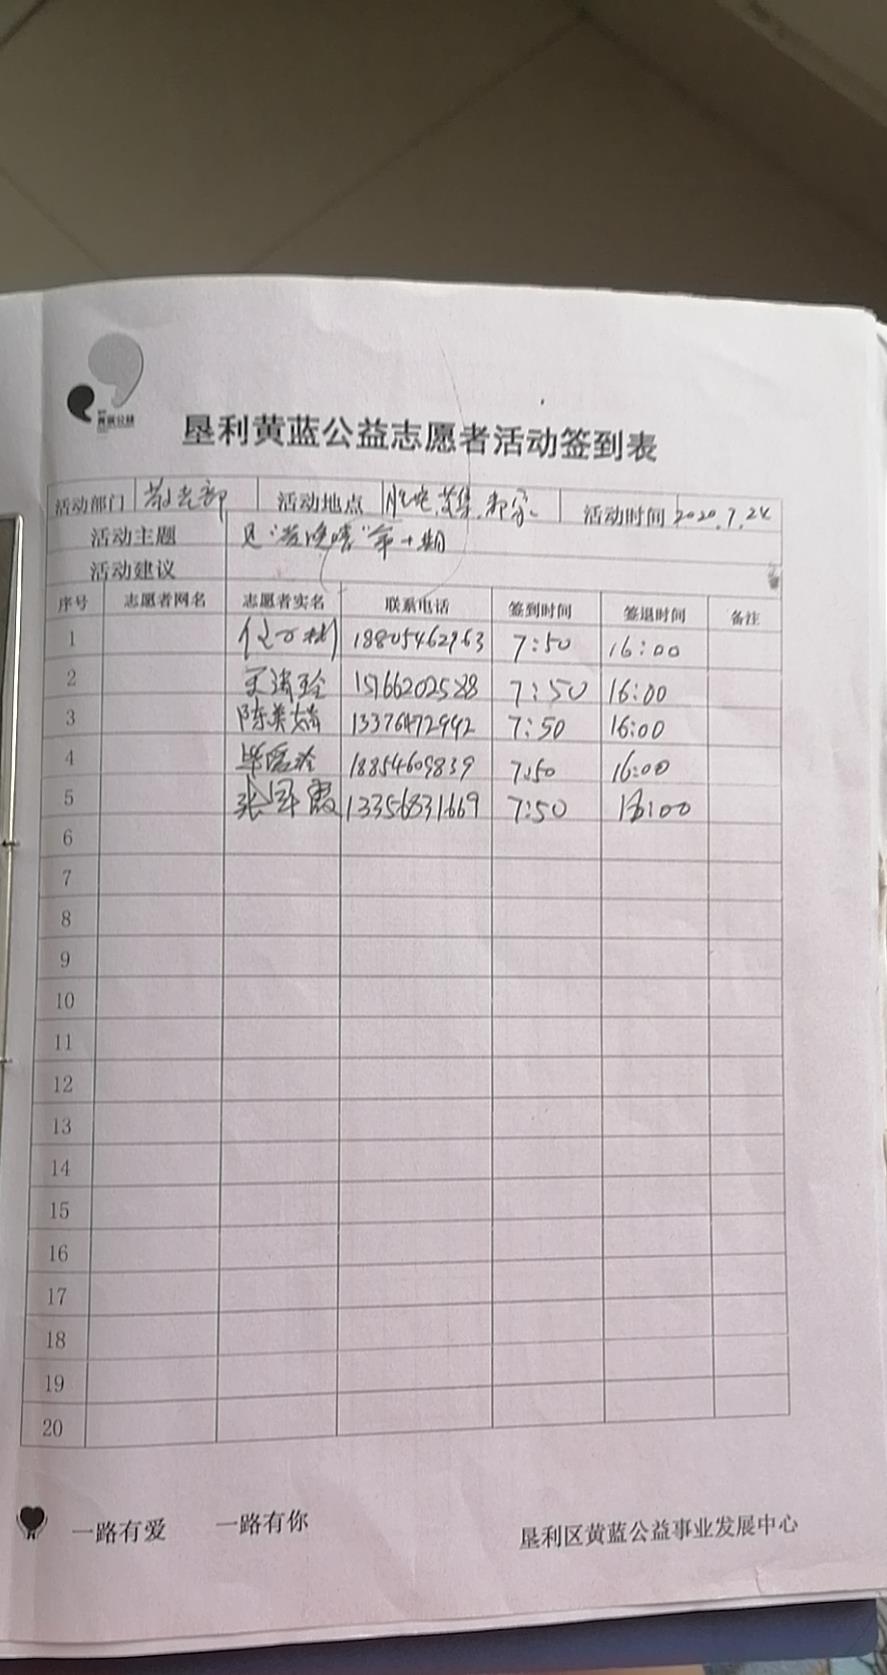 黄蓝公益
垦利黄蓝公益志愿者活动签到表
活动部门 敬老部 活动地点 活动时间 2020.7.24
活动主题 第十期
活动建议
序号 志愿者网名 志愿者实名 联系电话 签到时间 签退时间 备注
1 18805462963 7:50 16:00
2 15166202528 7:50 16:00
3 陈美娟 13376472942 7:50 16:00
4 18854609839 7:50 16:00
5 张军霞 13356831669 7:50 16:00
6
7
8
9
10
11
12
13
14
15
16
17
18
19
20
一路有爱 一路有你 垦利区黄蓝公益事业发展中心